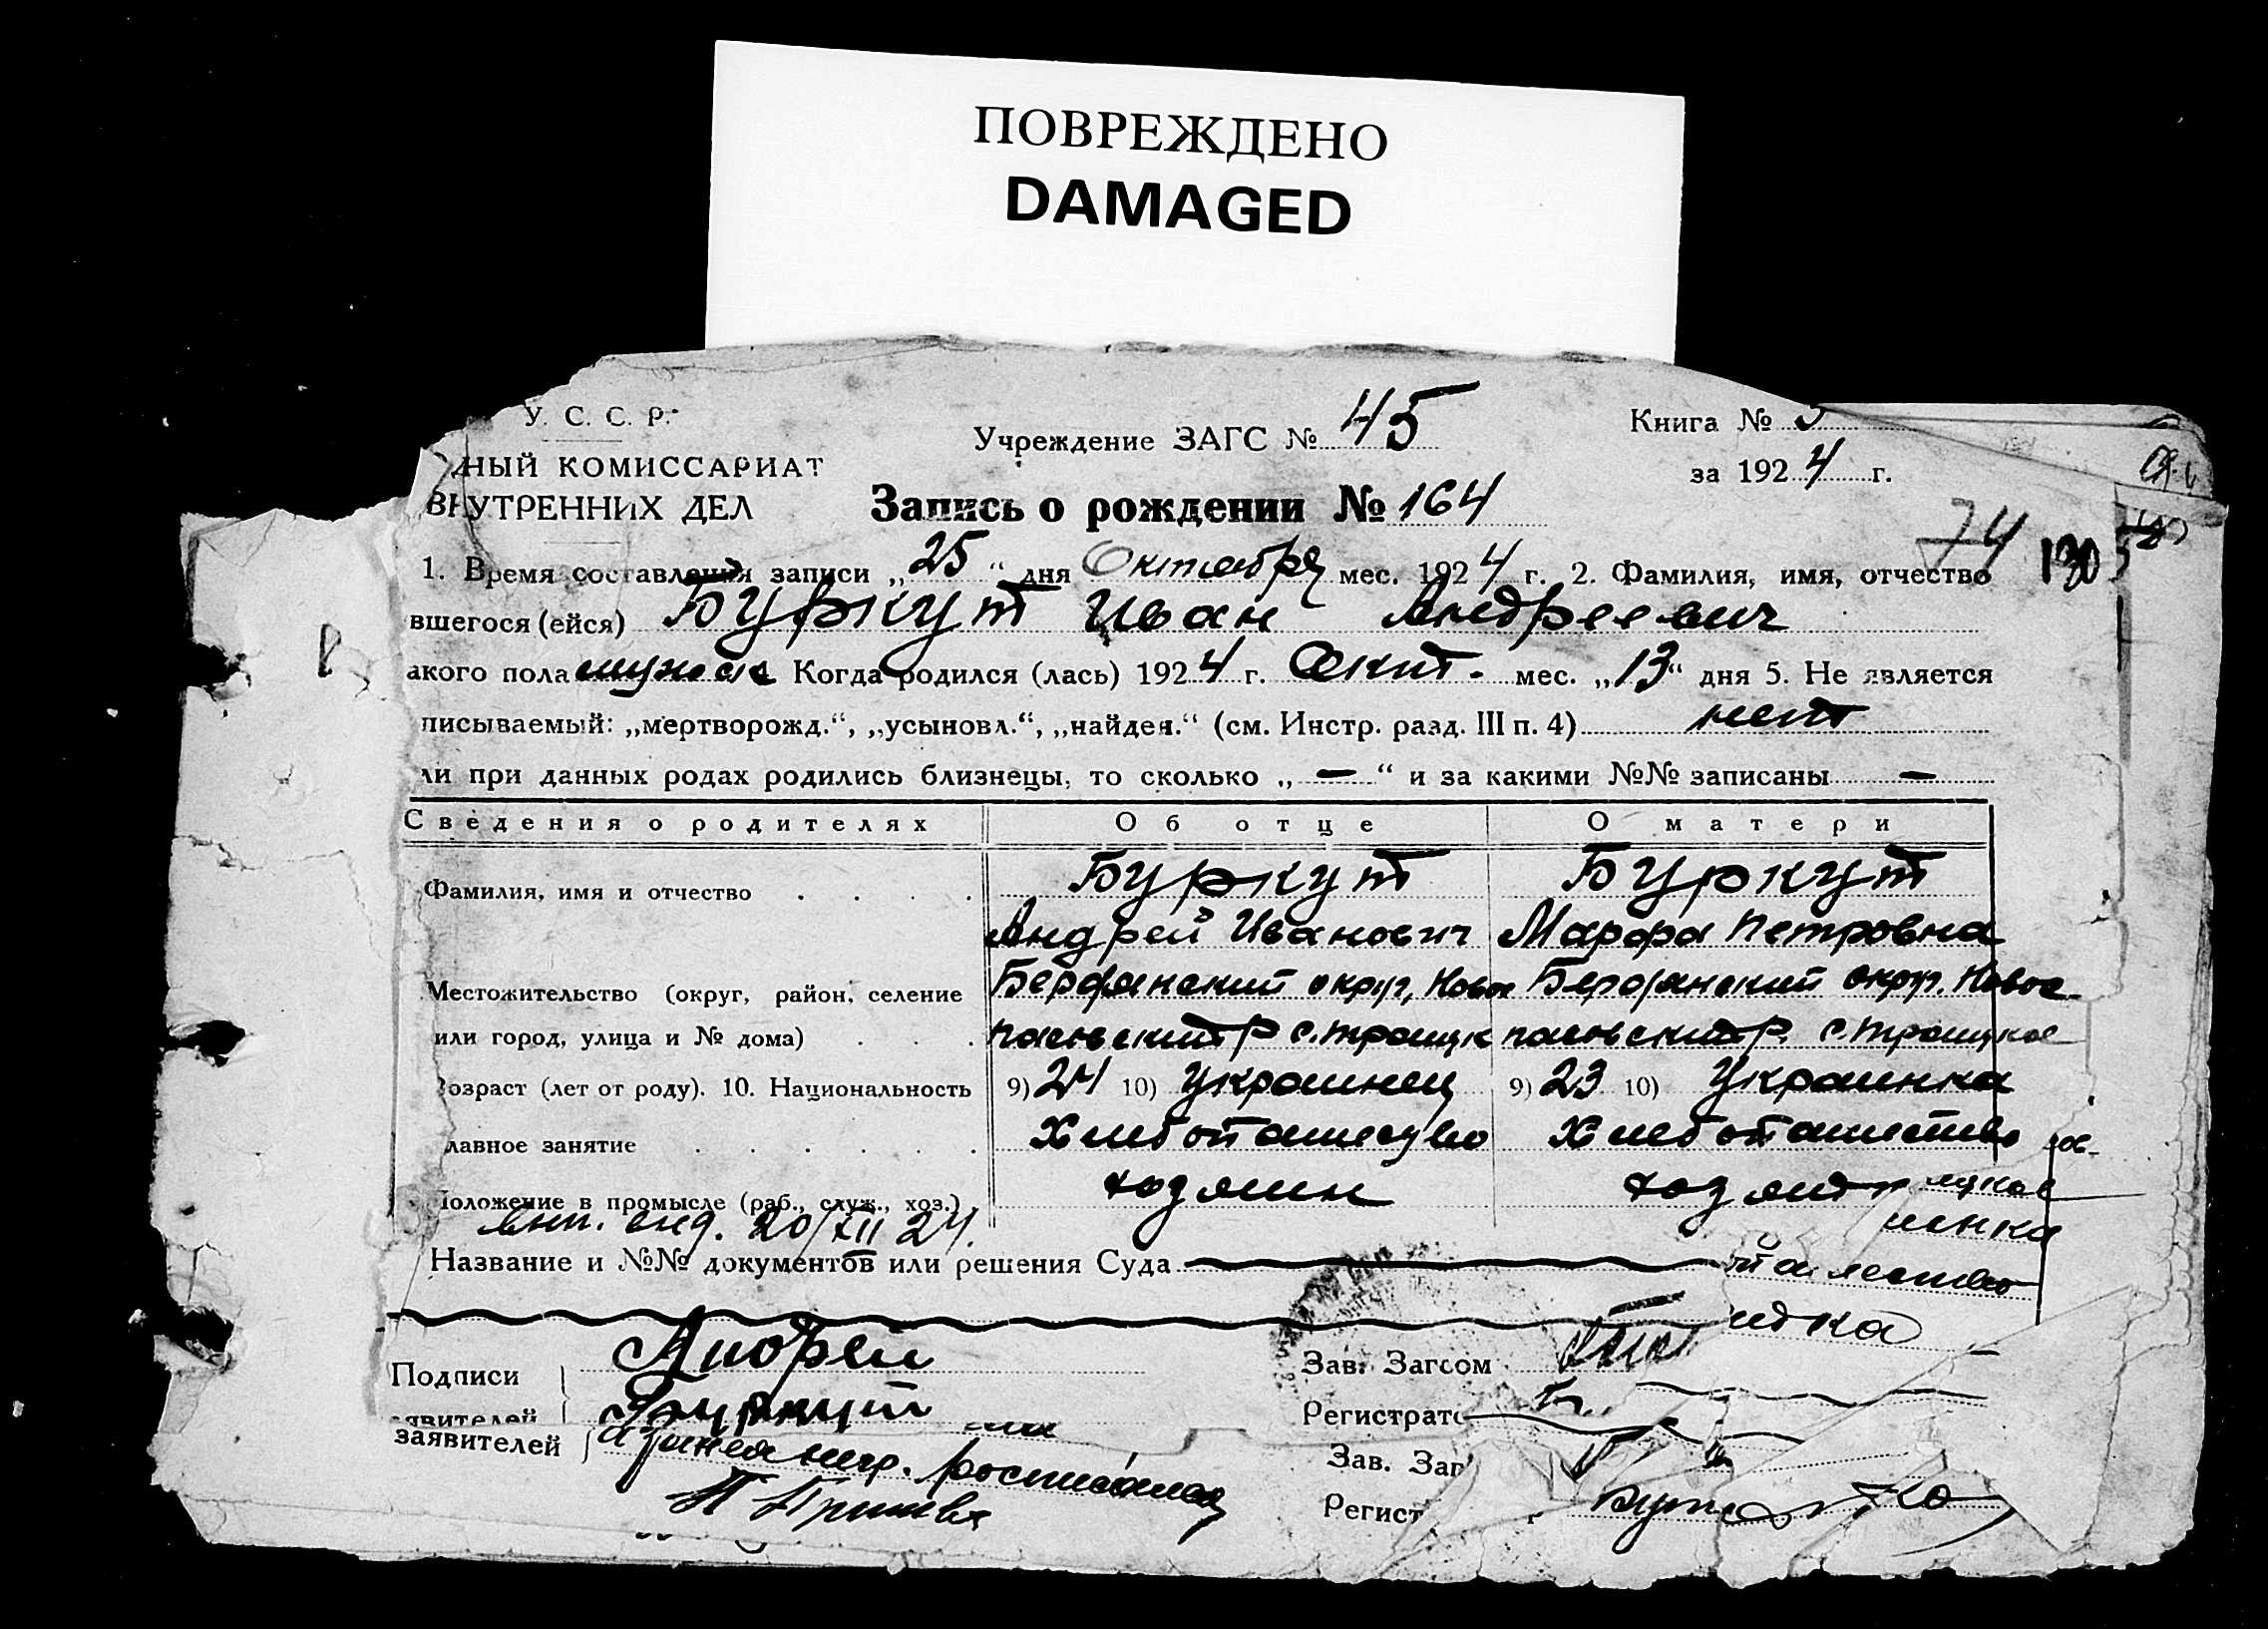 ПОВРЕЖДЕНО
DAMAGED
У. С. С. Р.
Учреждение ЗАГС № 45
Книга №
НЫЙ КОМИССАРИАТ
за 1924 г.
ВНУТРЕННИХ ДЕЛ
Запись о рождении № 164
74 130
1. Время составления записи „25“ дня Октября мес. 1924 г. 2. Фамилия, имя, отчество
вшегося (ейся) Буркут Иван Андреевич
акого пола мужск Когда родился (лась) 1924 г. Окт. мес. „13“ дня 5. Не является
писываемый: „мертворожд.“, „усыновл.“, „найден.“ (см. Инстр. разд. III п. 4) нет
ли при данных родах родились близнецы, то сколько „ — “ и за какими №№ записаны —
Сведения о родителях Об отце О матери
Фамилия, имя и отчество . . . . Буркут Буркут
Андрей Иванович Марфа Петровна
Местожительство (округ, район, селение Бердянский округ, Новос Бердянский окр. Новос
или город, улица и № дома) . . . пасовский р с. Троицк пасовский р. с. Троицкое
озраст (лет от роду). 10. Национальность 9) 24 10) Украинец 9) 23 10) Украинка
лавное занятие . . . . . . Хлебопашество Хлебопашество
оложение в промысле (раб., служ., хоз.) хозяин
20/XII 24.
Название и №№ документов или решения Суда
Подписи Андрей Зав. Загсом
явителей Буркут Регистрато
заявителей Зав. Заг
Регист